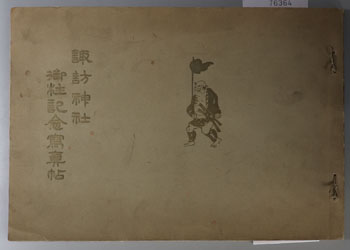 諏訪神社
御柱記念寫真帖
76364